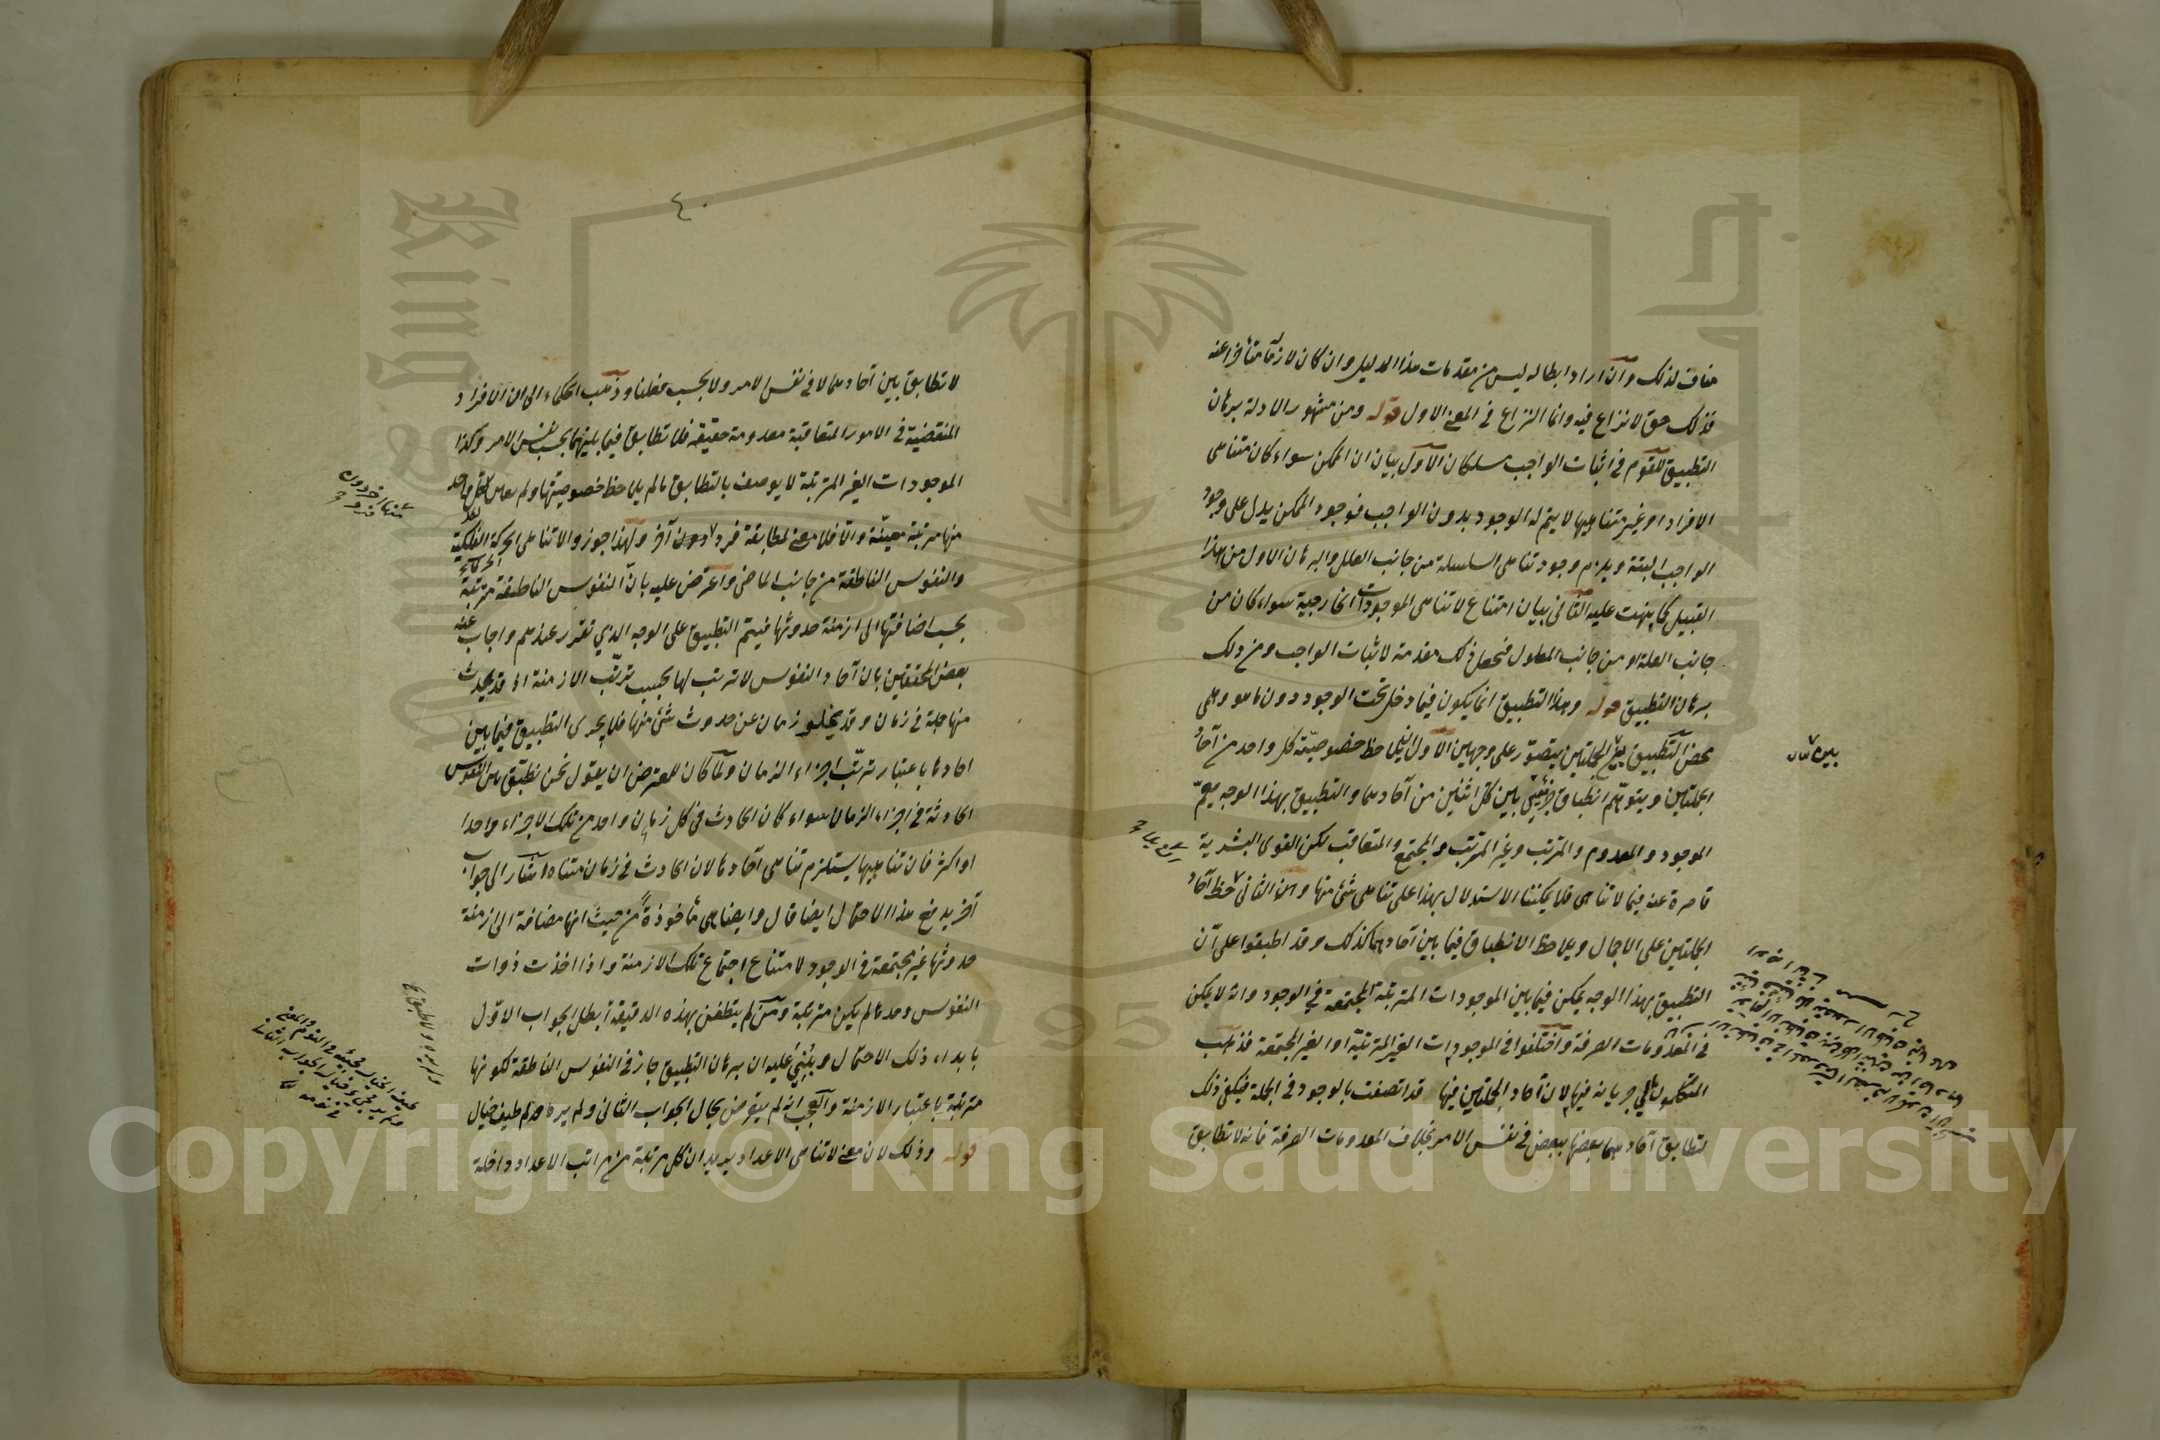 مناف لذلك وان اراد ابطاله ليس من مقدمات هذا الدليل وان كان لازما متأخرا عنه
فذلك حق لا نزاع فيه وانما النزاع في المعنى الاول قوله ومن مشهور الادلة برهان
التطبيق للقوم في اثبات الواجب مسلكان الاول بيان ان الممكن سواء كان متناهى
الافراد او غير متناهيها لا يتم له الوجود بدون الواجب فوجود الممكن يدل على وجود
الواجب البتة ويلزم وجود تناهى السلسلة من جانب العلل والبرهان الاول من هذا
القبيل كما نبهت عليه الثاني بيان امتناع لا تناهى الموجودات الخارجية سواء كان من
جانب العلة او من جانب المعلول فنجعل ذلك مقدمة لاثبات الواجب ومن ذلك
برهان التطبيق قوله وهذا التطبيق انما يكون فيما دخل تحت الوجود دون ما هو وهمى
محض التطبيق بين الجملتين يتصور على وجهين الاول ان يلاحظ خصوصية كل واحد من آحاد
الجملتين ويتوهم انطباق جزئيتى بين كل اثنين من آحادهما والتطبيق بهذا الوجه يعم
الموجود والمعدوم والمرتب وغير المرتب والمجتمع والمتعاقب لكن القوى البشرية
قاصرة عنه فيما لا تناهى فلا يمكننا الاستدلال بهذا على تناهى شئ منها والثانى ان يلاحظ آحاد
الجملتين على الاجمال ويلاحظ الانطباق فيما بين آحادهما كذلك وقد اطبقوا على ان
التطبيق بهذا الوجه يمكن فيما بين الموجودات المترتبة المجتمعة في الوجود وانه لا يمكن
في المعدومات الصرفة واختلفوا في الموجودات الغير المترتبة او الغير المجتمعة فذهب
المتكلمون الى جريانه فيهما لان آحاد الجملتين فيها قد اتصفت بالوجود في الجملة فيكفى ذلك
لتطابق آحادهما بعضها ببعض في نفس الامر بخلاف المعدومات الصرفة فانه لا تطابق
٤٠
لا تطابق بين آحادهما لا في نفس الامر ولا بحسب عقلنا وذهب الحكماء الى ان الافراد
المنقضية في الامور المتعاقبة معدومة حقيقة فلا تطابق فيما بينهما بحسب نفس الامر وكذا
الموجودات الغير المترتبة لا يوصف بالتطابق ما لم يلاحظ خصوصيتها ولم يعين لكل واحد
منها مرتبة معينة والا فلا معنى لمطابقة فرد دون آخر ولهذا جوزوا لا تناهى الحركة الفلكية
والنفوس الناطقة من جانب الماضى واعترض عليه بان النفوس الناطقة مترتبة
بحسب اضافتها الى ازمنة حدوثها فيتم التطبيق على الوجه الذي تقرر عندهم واجاب عنه
بعض المحققين بان آحاد النفوس لا ترتب لها بحسب ترتب الازمنة اذ قد يحدث
منها جملة في زمان وقد يخلو زمان عن حدوث شئ منها فلا يجرى التطبيق فيما بين
احادها باعتبار ترتب اجزاء الزمان ولما كان للمعترض ان يقول نحن نطبق بين النفوس
الحادثة في اجزاء الزمان سواء كان الحادث في كل زمان واحد من تلك الاجزاء واحدا
او اكثر فان تناهيها يستلزم تناهى آحادها لان الحادث في زمان متناه اشار الى جواب
آخر يدفع هذا الاحتمال ايضا قال وايضا هى مأخوذة من حيث انها مضافة الى ازمنة
حدوثها غير مجتمعة في الوجود لامتناع اجتماع تلك الازمنة واذا اخذت ذوات
النفوس وحدها لم يكن مترتبة ومن لم يتفطن بهذه الدقيقة أبطل الجواب الاول
بابداء ذلك الاحتمال وبنى عليه ان برهان التطبيق جار في النفوس الناطقة لكونها
مترتبة باعتبار الازمنة والعجب انه لم يتعرض بحال الجواب الثانى ولم يره طيف خيال
قوله وذلك لان معنى لا تناهى الاعداد يريد ان كل مرتبة من مراتب الاعداد داخلة
Copyright © King Saud University